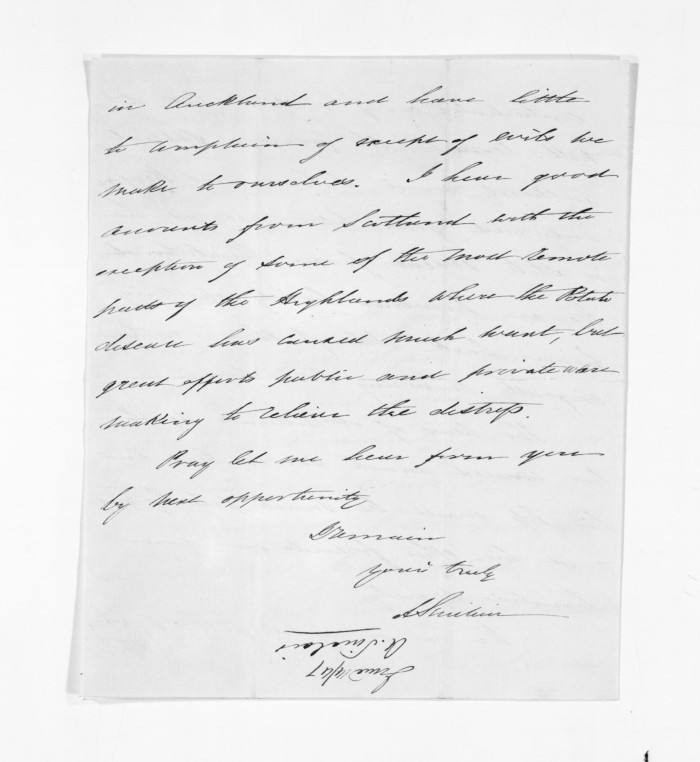 in Auckland and have little
to complain of except of evils we
make to ourselves. I hear good
accounts from Scotland with the
exception of some of the most remote
parts of the Highlands where the Potato
disease has caused much want, but
great efforts public and private are
making to relieve the distress.
Pray let me hear from you
by next opportunity
I remain
yours truly
A Sinclair
A. Sinclair
June 14/47